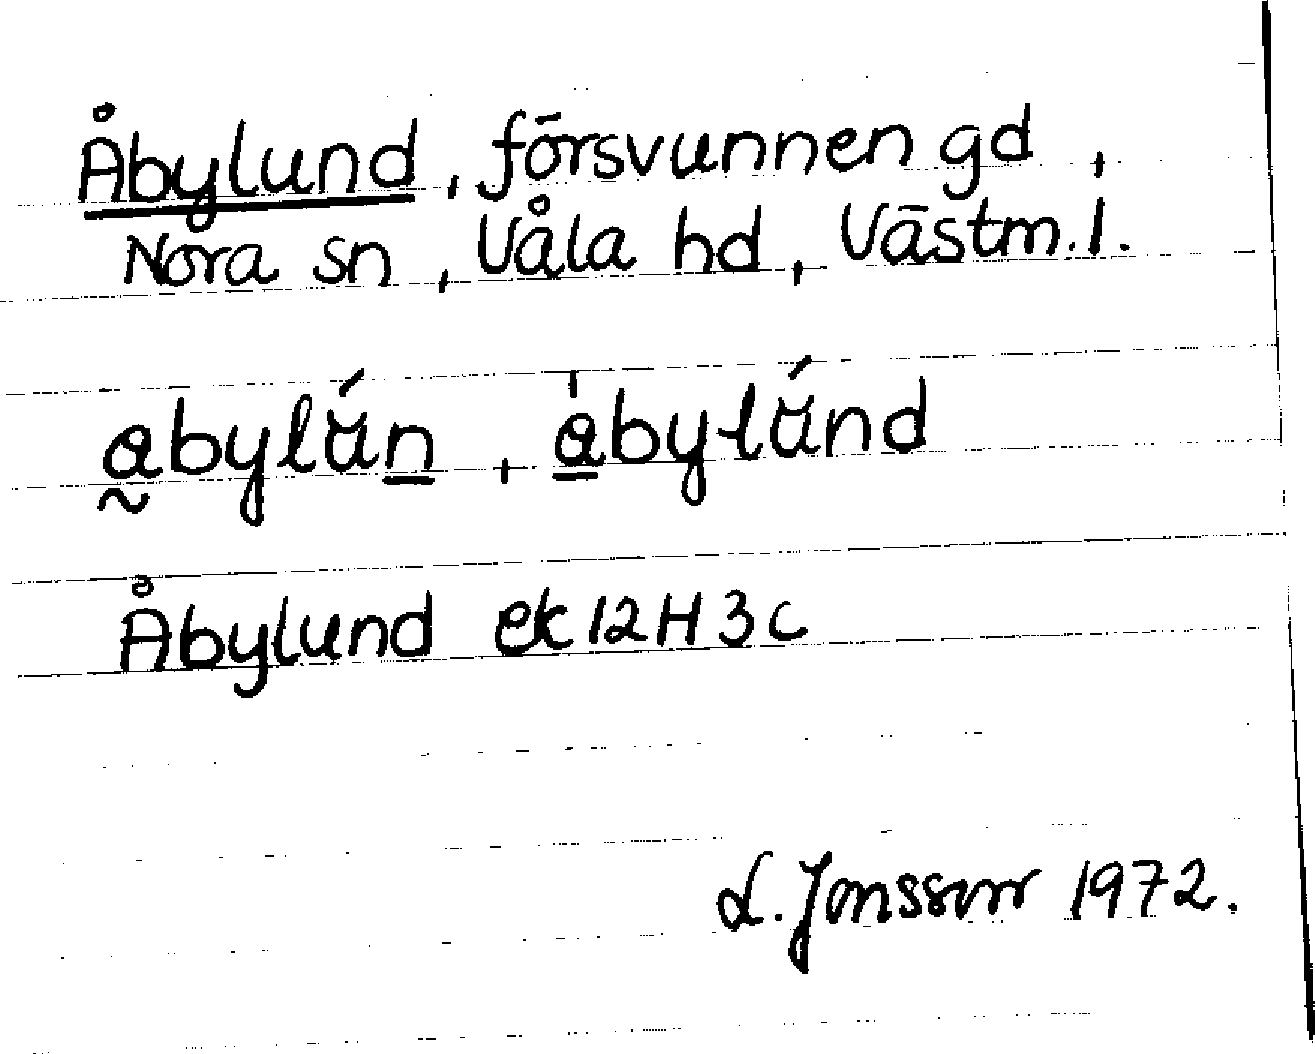 Åbylund, försvunnen gd,
Nora sn, Våla hd, Västm.l.
åbylún, åbylúnd
Åbylund ek 12H 3c
L. Jonsson 1972.